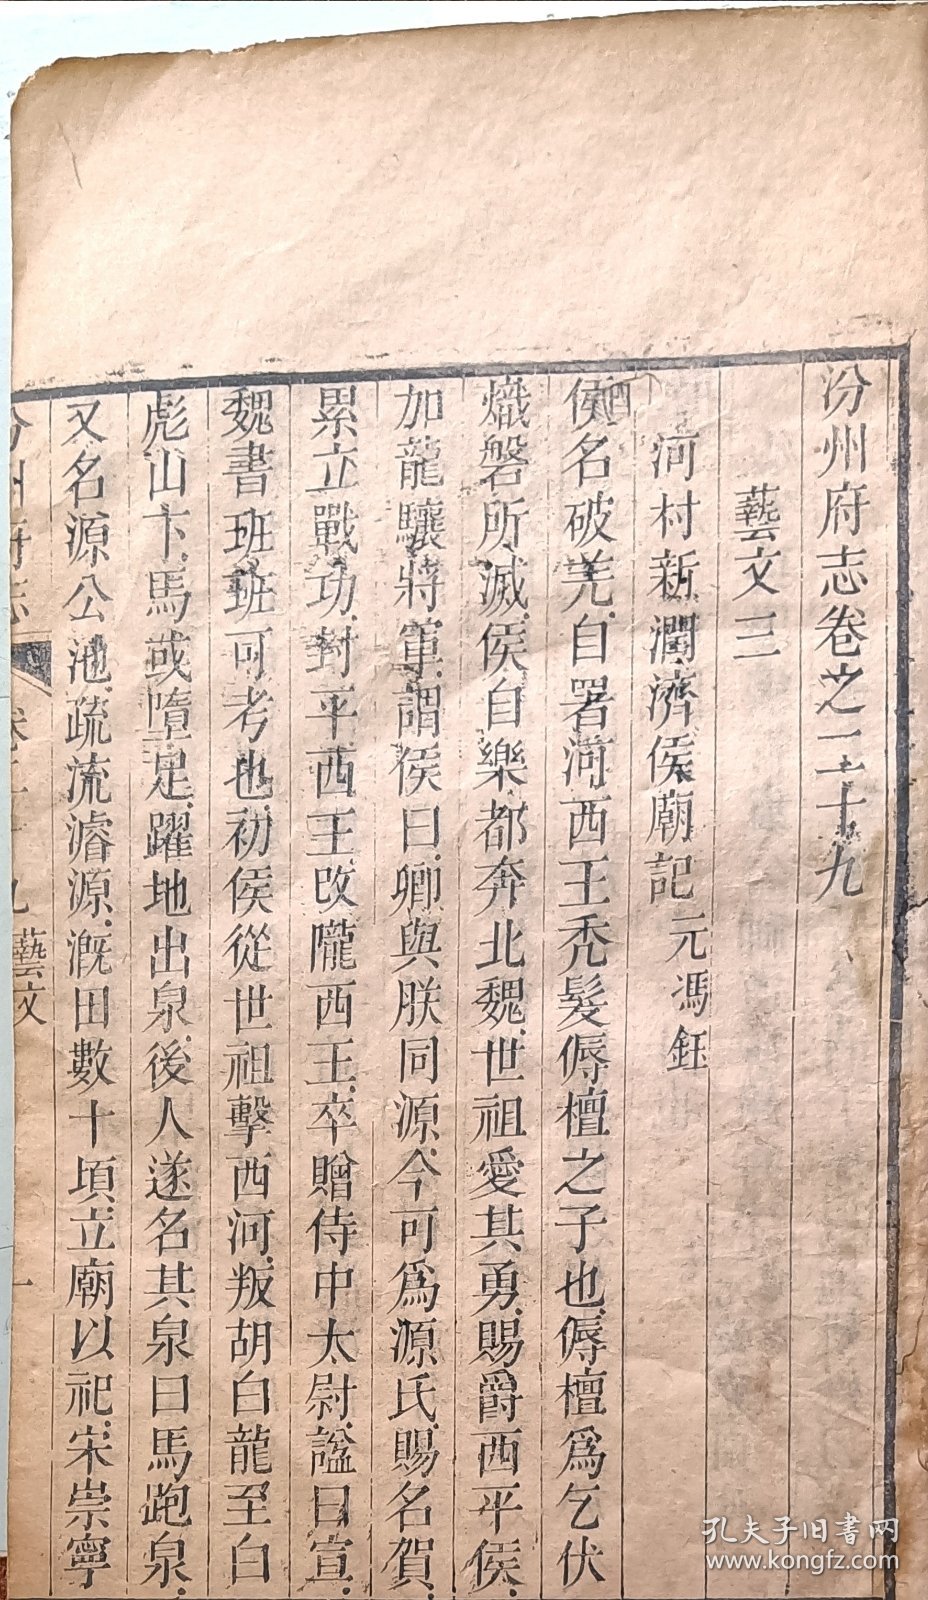 汾州府志卷之二十九
藝文三
河村新濶濟侯廟記 元馮鈺
侯名破羌自署河西王禿髮傉檀之子也傉檀爲乞伏
熾磐所滅侯自樂都奔北魏世祖愛其勇賜爵西平侯
加龍驤將軍謂侯曰卿與朕同源今可爲源氏賜名賀
累立戰功封平西王改隴西王卒贈侍中太尉諡曰宣
魏書班班可考也初侯從世祖擊西河叛胡白龍至白
彪山下馬或墮足躍地出泉後人遂名其泉曰馬跑泉
又名源公池疏流濬源溉田數十頃立廟以祀宋崇寧
汾州府志 卷二十九 藝文 一
孔夫子旧书网
www.kongfz.com